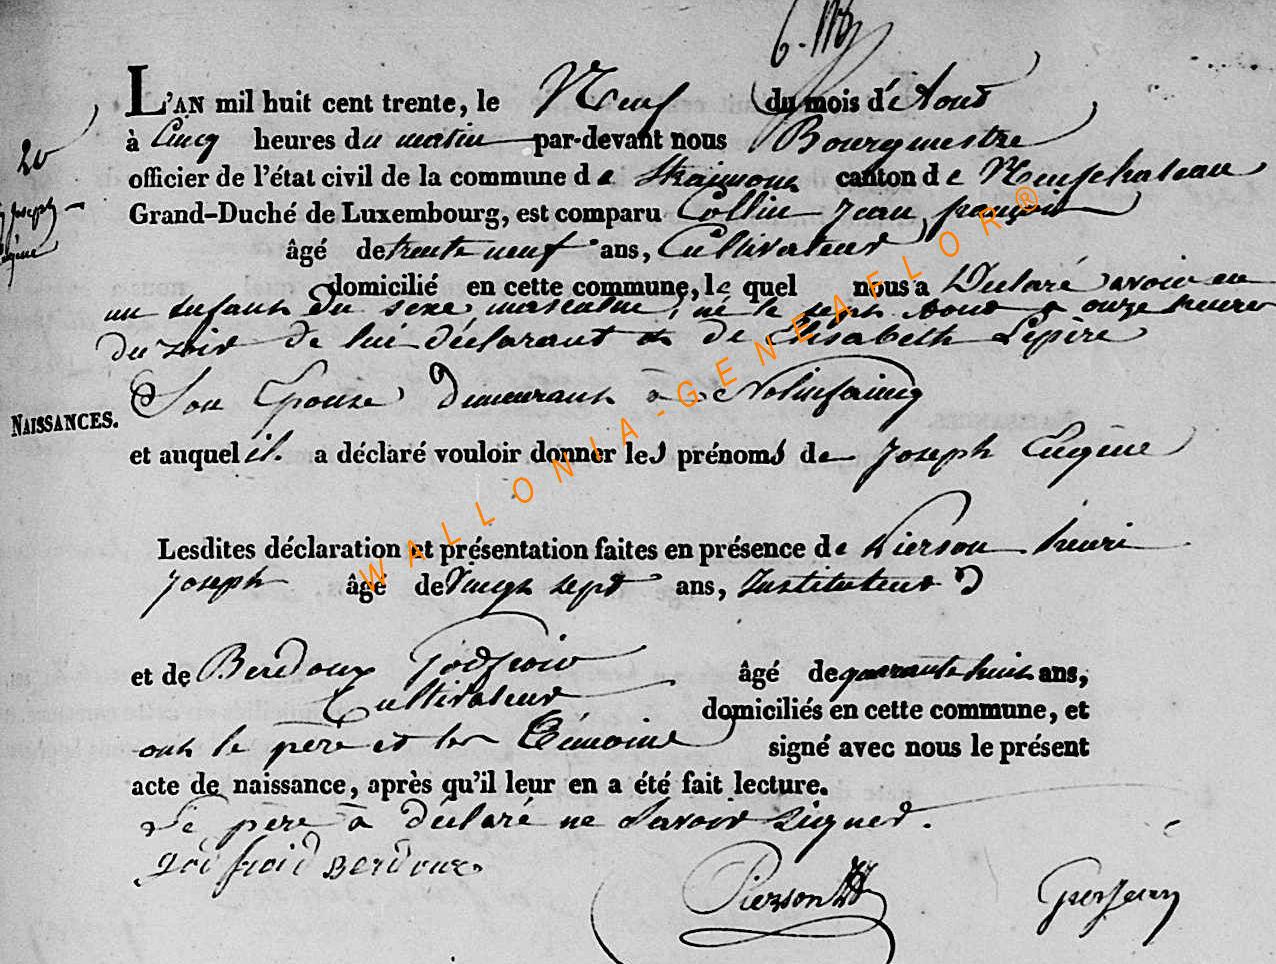 L'AN mil huit cent trente, le Neuf du mois d'Aout
20
à Cinq heures du matin par-devant nous Bourgmestre
officier de l'état civil de la commune de Straimont canton de Neufchateau
Joseph
Grand-Duché de Luxembourg, est comparu Collin Jean françois
âgé de trente neuf ans, Cultivateur
domicilié en cette commune, le quel nous a Déclaré avoir eu
un enfant du sexe masculin, né le aout a onze heures
Du soir de lui déclarant et de Elisabeth Lepère
Son Epouse Demeurant à Nolinfaing
NAISSANCES.
et auquel il a déclaré vouloir donner les prénoms de Joseph Eugène
Lesdites déclaration et présentation faites en présence de Pierson henri
Joseph âgé de Vingt sept ans, Instituteur
et de Berdoux Godfroid âgé de quarante huit ans,
Cultivateur domiciliés en cette commune, et
ont le père et les témoins signé avec nous le présent
acte de naissance, après qu'il leur en a été fait lecture.
Le père à déclaré ne Savoir Signer.
godfroid Berdoux Pierson
WALLONIA-GENEAFLOR®